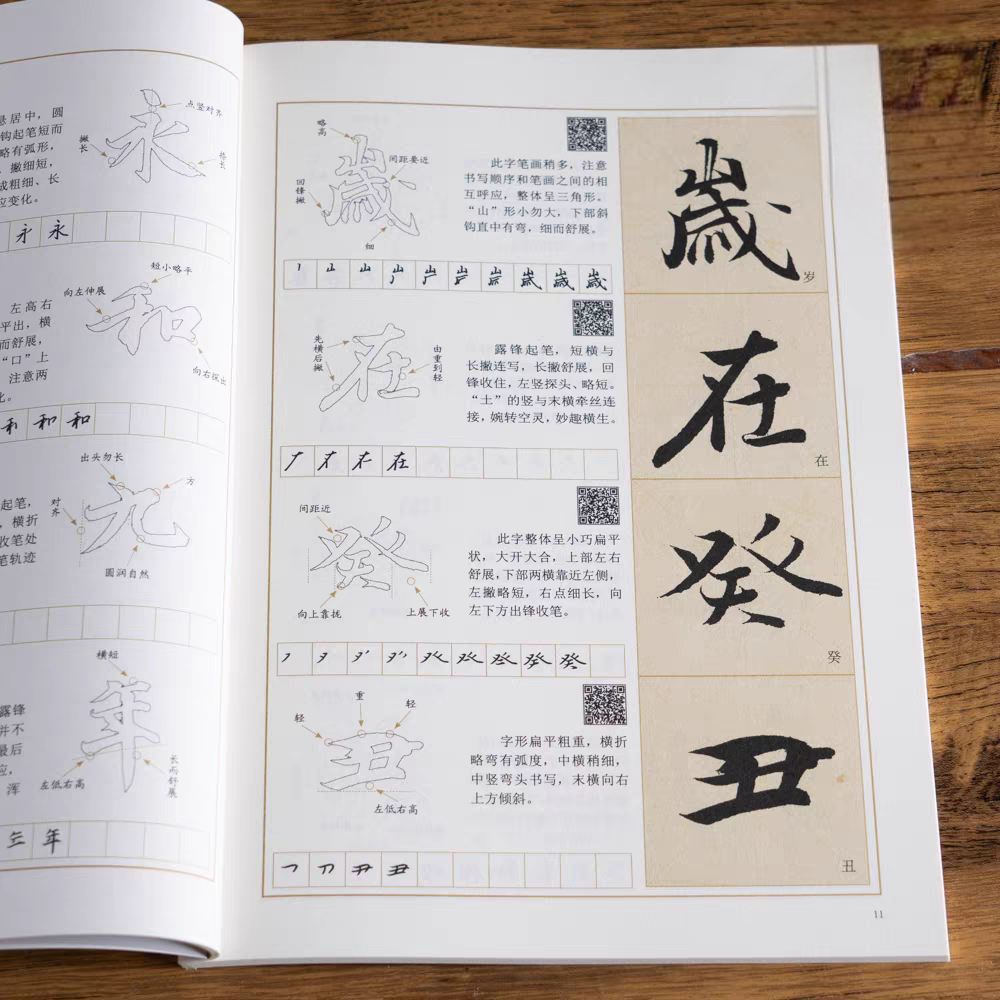 点竖对齐
居中，圆
钩起笔短而
略有弧形，
撇细短，
成粗细、长
变化。
撇长
捺长
永 永
短小略平
向左伸展
左高右
平出，横
而舒展，
“口”上
注意两
化。
向右探出
和 和 和
出头勿长
方
对齐
起笔，
横折
收笔处
笔轨迹
圆润自然
横短
露锋
并不
最后
应，
浑
左低右高
长而舒展
年
略高
间距要近
回锋撇
细
此字笔画稍多，注意
书写顺序和笔画之间的相
互呼应，整体呈三角形。
“山”形小勿大，下部斜
钩直中有弯，细而舒展。
歲
岁
先横后撇
由重到轻
露锋起笔，短横与
长撇连写，长撇舒展，回
锋收住，左竖探头、略短。
“土”的竖与末横牵丝连
接，婉转空灵，妙趣横生。
在
在
间距近
向上靠拢
上展下收
此字整体呈小巧扁平
状，大开大合，上部左右
舒展，下部两横靠近左侧，
左撇略短，右点细长，向
左下方出锋收笔。
癸
癸
轻
重
轻
左低右高
字形扁平粗重，横折
略弯有弧度，中横稍细，
中竖弯头书写，末横向右
上方倾斜。
丑
丑
11